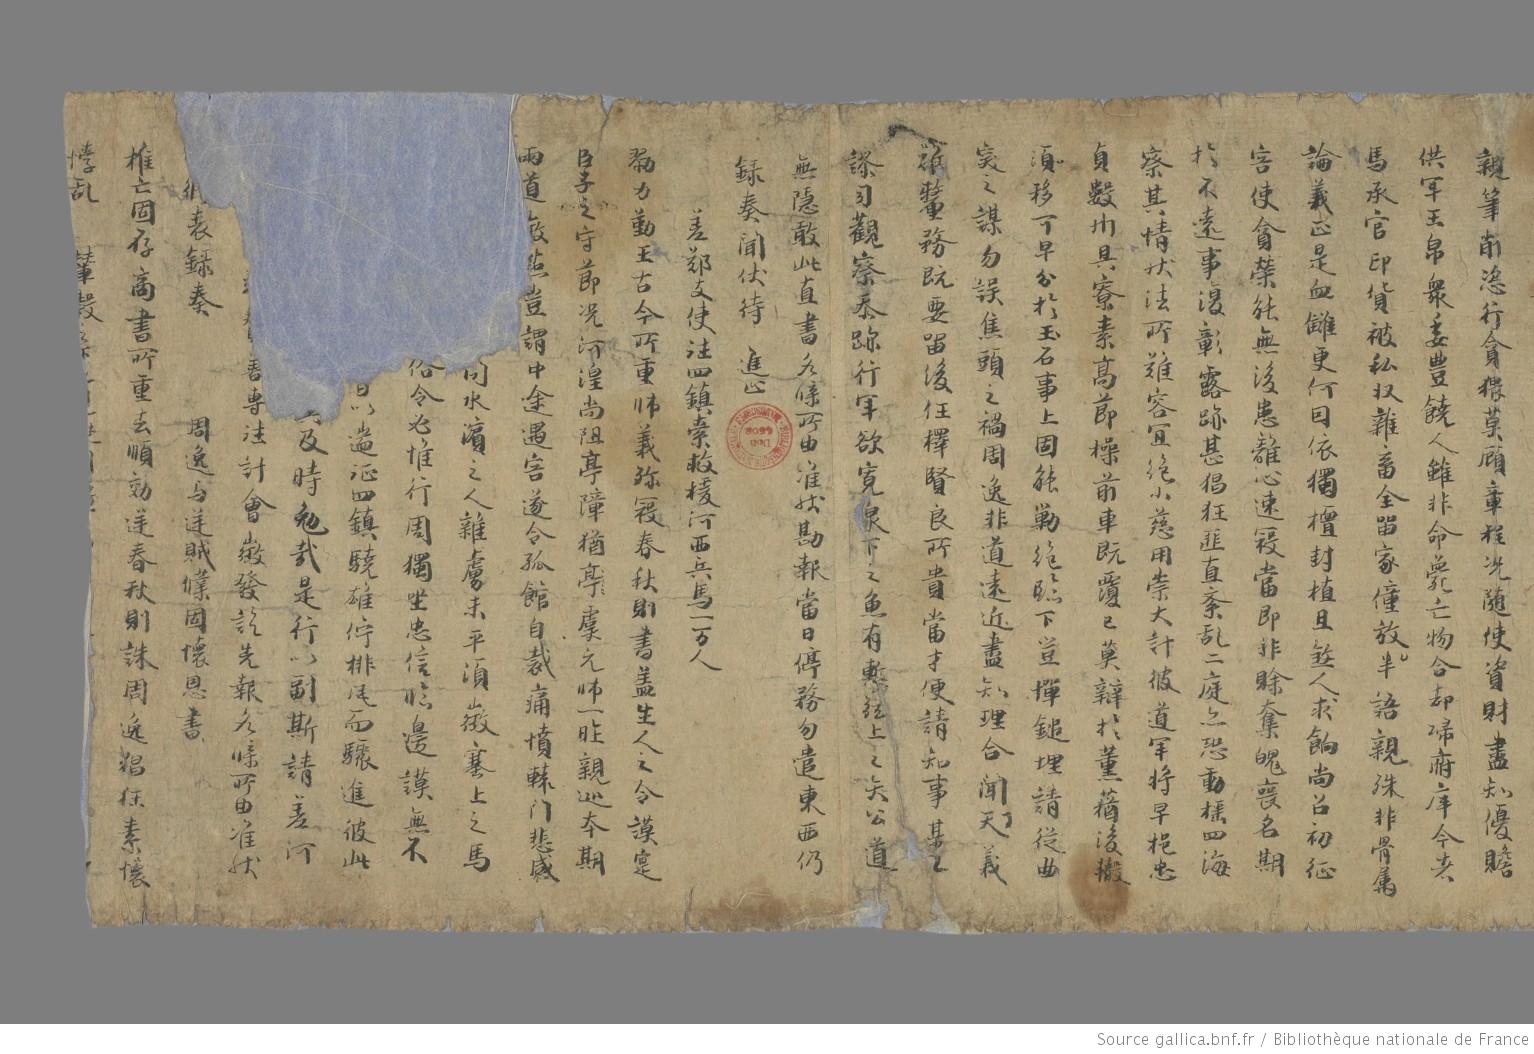 親筆削恣行貪猥莫顧章程况随使資財盡知優贍
供軍玉帛衆委豊饒人雖非命薨亡物合却歸府庫今者
馬承官印貨被私収雜畜全留家僮放半語親殊非骨属
論義正是血讎更何因依獨擅封植且煞人求餉尚召初征
害使貪榮能無後患離心速寇當即非賒奪魄喪名期
於不遠事復彰露跡甚倡狂匪直紊乱二庭亦恐動揺四海
察其情状法所難容宜絶小慈用崇大計彼道軍将早挹忠
貞數州具寮素高節操前車既覆已莫辯於薫蕕後轍
須移可早分於玉石事上固能勦絶臨下豈憚鋤埋請從曲
突之謀勿誤焦頭之禍周逸非道遠近盡知理合聞天義
難蟄務既要留後任擇賢良所貴當才便請知事某乙
謬司觀察忝跡行軍欲寛泉下之魚有慙弦上之矢公道
無隱敢此直書各條所由准狀勘報當日停務勿遣東西仍
録奏聞伏待 進止
差鄭支使往四鎮索救援河西兵馬一万人
勠力勤王古今所重帥義殄寇春秋則書盖生人之令謨寔
臣子之守節况河湟尚阻亭障猶虞元帥一昨親巡本期
兩道豈謂中途遇害遂令孤館自裁痛憤轅門悲感
同水濱之人雜虜未平須徴塞上之馬
俗令必惟行周獨坐忠信臨邊謨無不
四鎮驍雄佇排風而驟進彼此
及時勉哉是行以副斯請差河
專往計會徴發訖先報各條所由准狀
表録奏 周逸与逆賊僕固懐恩書
推亡固存商書所重去順効逆春秋則誅周逸猖狂素懐
悖乱 輦轂
Source gallica.bnf.fr / Bibliothèque nationale de France